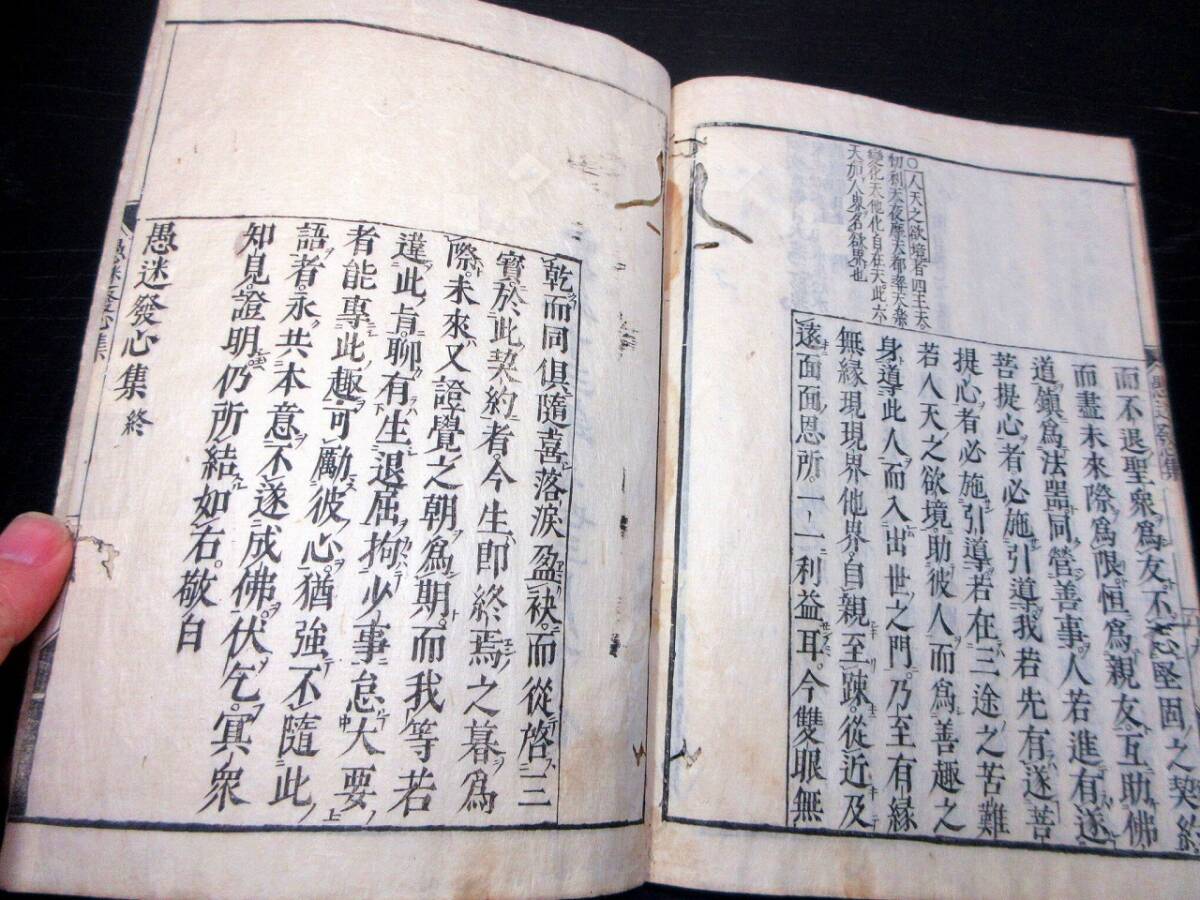 ○人天之欲境者四王天
忉利天夜摩天都率天樂
變化天他化自在天此六
天加人界名欲界也
而不退聖衆爲友不忘堅固之契約
而盡未來際爲限恒爲親友互助佛
道鎮爲法器同營善事人若進有遂
菩提心者必施引導我若先有遂菩
提心者必施引導若在三途之苦難
若人天之欲境助彼人而爲善趣之
身導此人而入出世之門乃至有縁
無縁現現界他界自親至踈從近及
遠面面恩所一一利益耳今雙眼無
乾而同倶隨喜落淚盈袂而從啓三
寳於此契約者今生即終焉之暮爲
際未來又證覺之朝爲期而我等若
違此旨聊有生退屈拘少事怠大要
者能專此趣可勵彼心猶強不隨此
語者永共本意不遂成佛伏乞冥衆
知見證明仍所結如右敬白
愚迷發心集 終
愚迷發心集